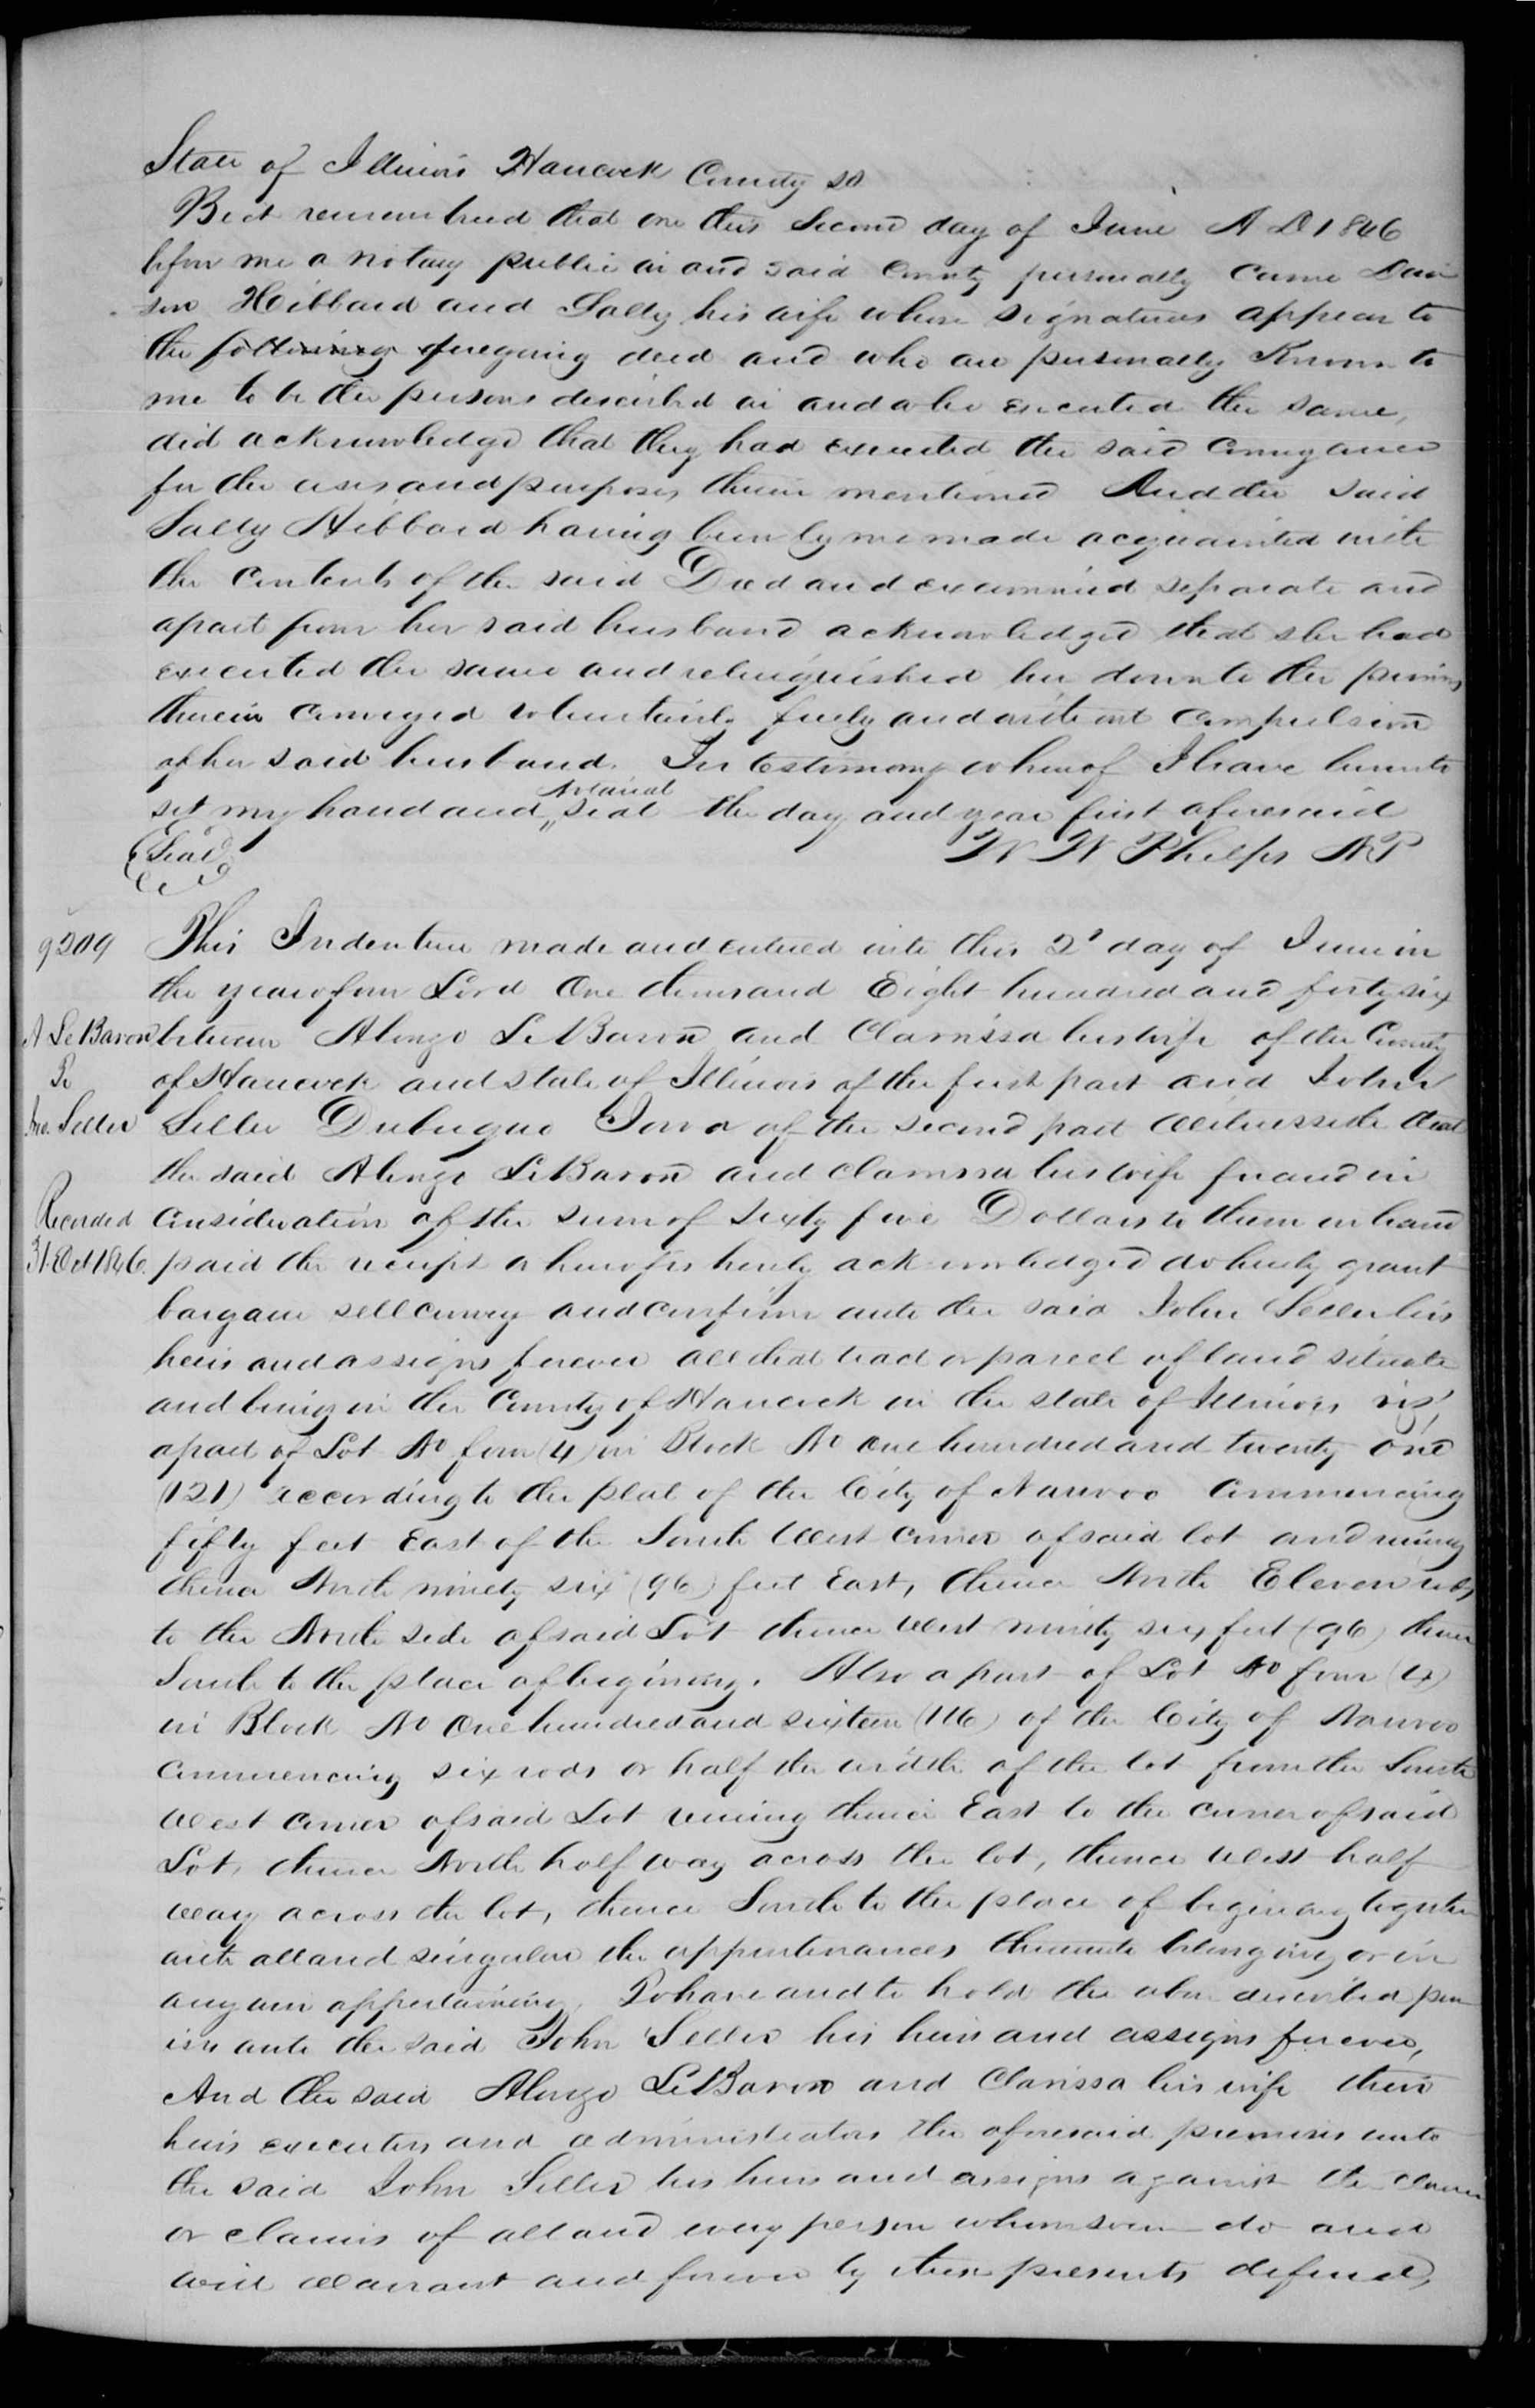 State of Illinois Hancock County ss
Be it remembered that on this Second day of June A D 1846
before me a notary public in and said County personally came Davi
son Hibbard and Sally his wife whose signatures appear to
the following foregoing deed and who are personally Known to
me to be the persons described in and who executed the same,
did acknowledge that they had executed the said Conveyance
for the uses and purposes therein mentioned And the said
Sally Hibbard having been by me made acquainted with
the Contents of the said Deed and examined separate and
apart from her said husband acknowledged that she had
executed the same and relinquished her dower to the premises
therein Conveyed voluntarily freely and without Compulsion
of her said husband. In testimony whereof I have hereunto
set my hand and Notarial seal the day and year first aforesaid
(Seal) W W Phelps NP
9209 This Indenture made and entered into this 2d day of June in
the year of our Lord One thousand Eight hundred and forty six
A LeBaron between Alonzo LeBaron and Clarissa his wife of the County
To of Hancock and state of Illinois of the first part and John
Jno. Seller Seller Dubuque Iowa of the second part Witnesseth that
the said Alonzo LeBaron and Clarissa his wife for and in
Recorded Consideration of the sum of Sixty five Dollars to them in hand
31 Oct 1846. paid the receipt whereof is hereby acknowledged do hereby grant
bargain sell convey and confirm unto the said John Seller his
heirs and assigns forever all that tract or parcel of land situate
and being in the County of Hancock in the state of Illinois viz,
a part of Lot No four (4) in Block No One hundred and twenty one
(121) according to the plat of the City of Nauvoo Commencing
fifty feet East of the South West corner of said lot and runing
thence North ninety six (96) feet East, thence North Eleven rods
to the North side of said Lot thence West ninety six feet (96) thence
South to the place of begining. Also a part of Lot No four (4)
in Block No One hundred and sixteen (116) of the City of Nauvoo
Commencing six rods or half the width of the lot from the South
West corner of said Lot runing thence East to the corner of said
Lot, thence North half way across the lot, thence West half
way across the lot, thence South to the place of begining together
with all and singular the appurtenances thereunto belonging or in
any wise appertaining, To have and to hold the above described prem
ises unto the said John Seller his heirs and assigns forever,
And the said Alonzo LeBaron and Clarissa his wife their
heirs executors and administrators the aforesaid premises unto
the said John Seller his heirs and assigns against the claim
or claims of all and every person whomsoever do and
will Warrant and forever by these presents defend,